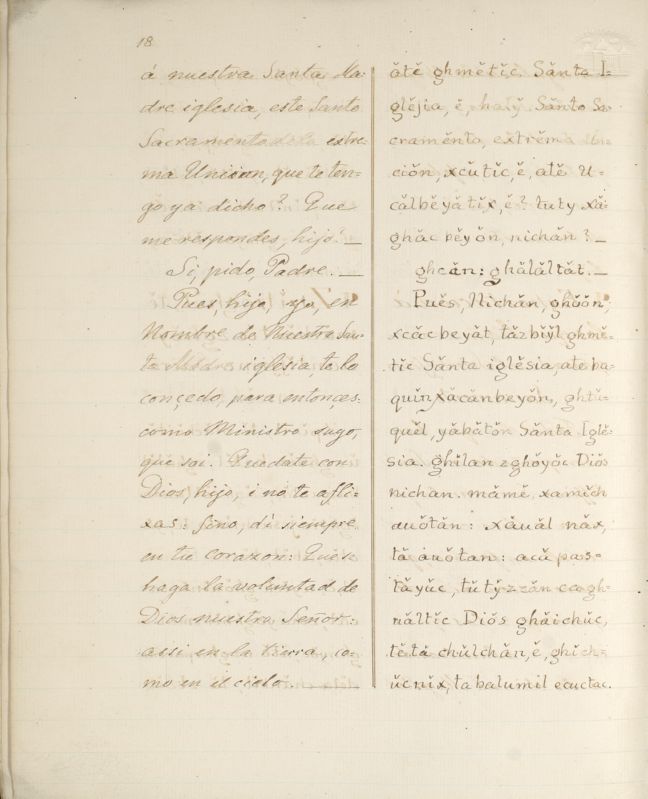 18
á nuestra Santa Ma-
dre iglesia, este Santo
Sacramento de la extre-
ma Uncion, que te ten=
go ya dicho? Que
me respondes, hijo? _
Si, pido, Padre. _
Pues, hijo, yo, en
Nombre de Nuestra San-
ta Madre iglesia, te lo
conçedo, para entonçes.
como Ministro suyo,
que soi. Quedate con
Dios, hijo, i no te afli-
xas: sino, di siempre,
en tu corazon: Que se
haga la voluntad de
Dios nuestro Señor:
assi en la tierra, co=
mo en el cielo.
ătĕ ghmĕtĭc Sănta I-
glĕjia, ĕ, Sănto Sa-
cramĕnto, extrĕma Un-
ciŏn, xcŭtĭc, ĕ, atĕ U=
călbĕyătĭx, ĕ? tuty xă-
ghăc bĕy ŏn, nichăn? _
ghcăn: ghălăltăt. _
Puĕs, Nichăn, ghŏŏn,
xcăcbeyăt, tăzbĭyl ghmĕ=
tĭc Sănta iglĕsia, ate ba-
quĭn xăcănbeyŏn, ghtŭ-
quĕl, yăbătŏn Sănta Iglĕ-
sia. ghĭlan zghŏyŏc Diŏs
nichan. mămĕ, xamĭch
auŏtăn: xăuăl năx,
tă auŏtan: acă pas=
tăyŭc, tŭtyzzăn cagh-
năltĭc Diŏs ghăichŭc,
tĕtă chŭlchăn, ĕ, ghĭch-
ŭcnĭx, ta balumil ecuctac.